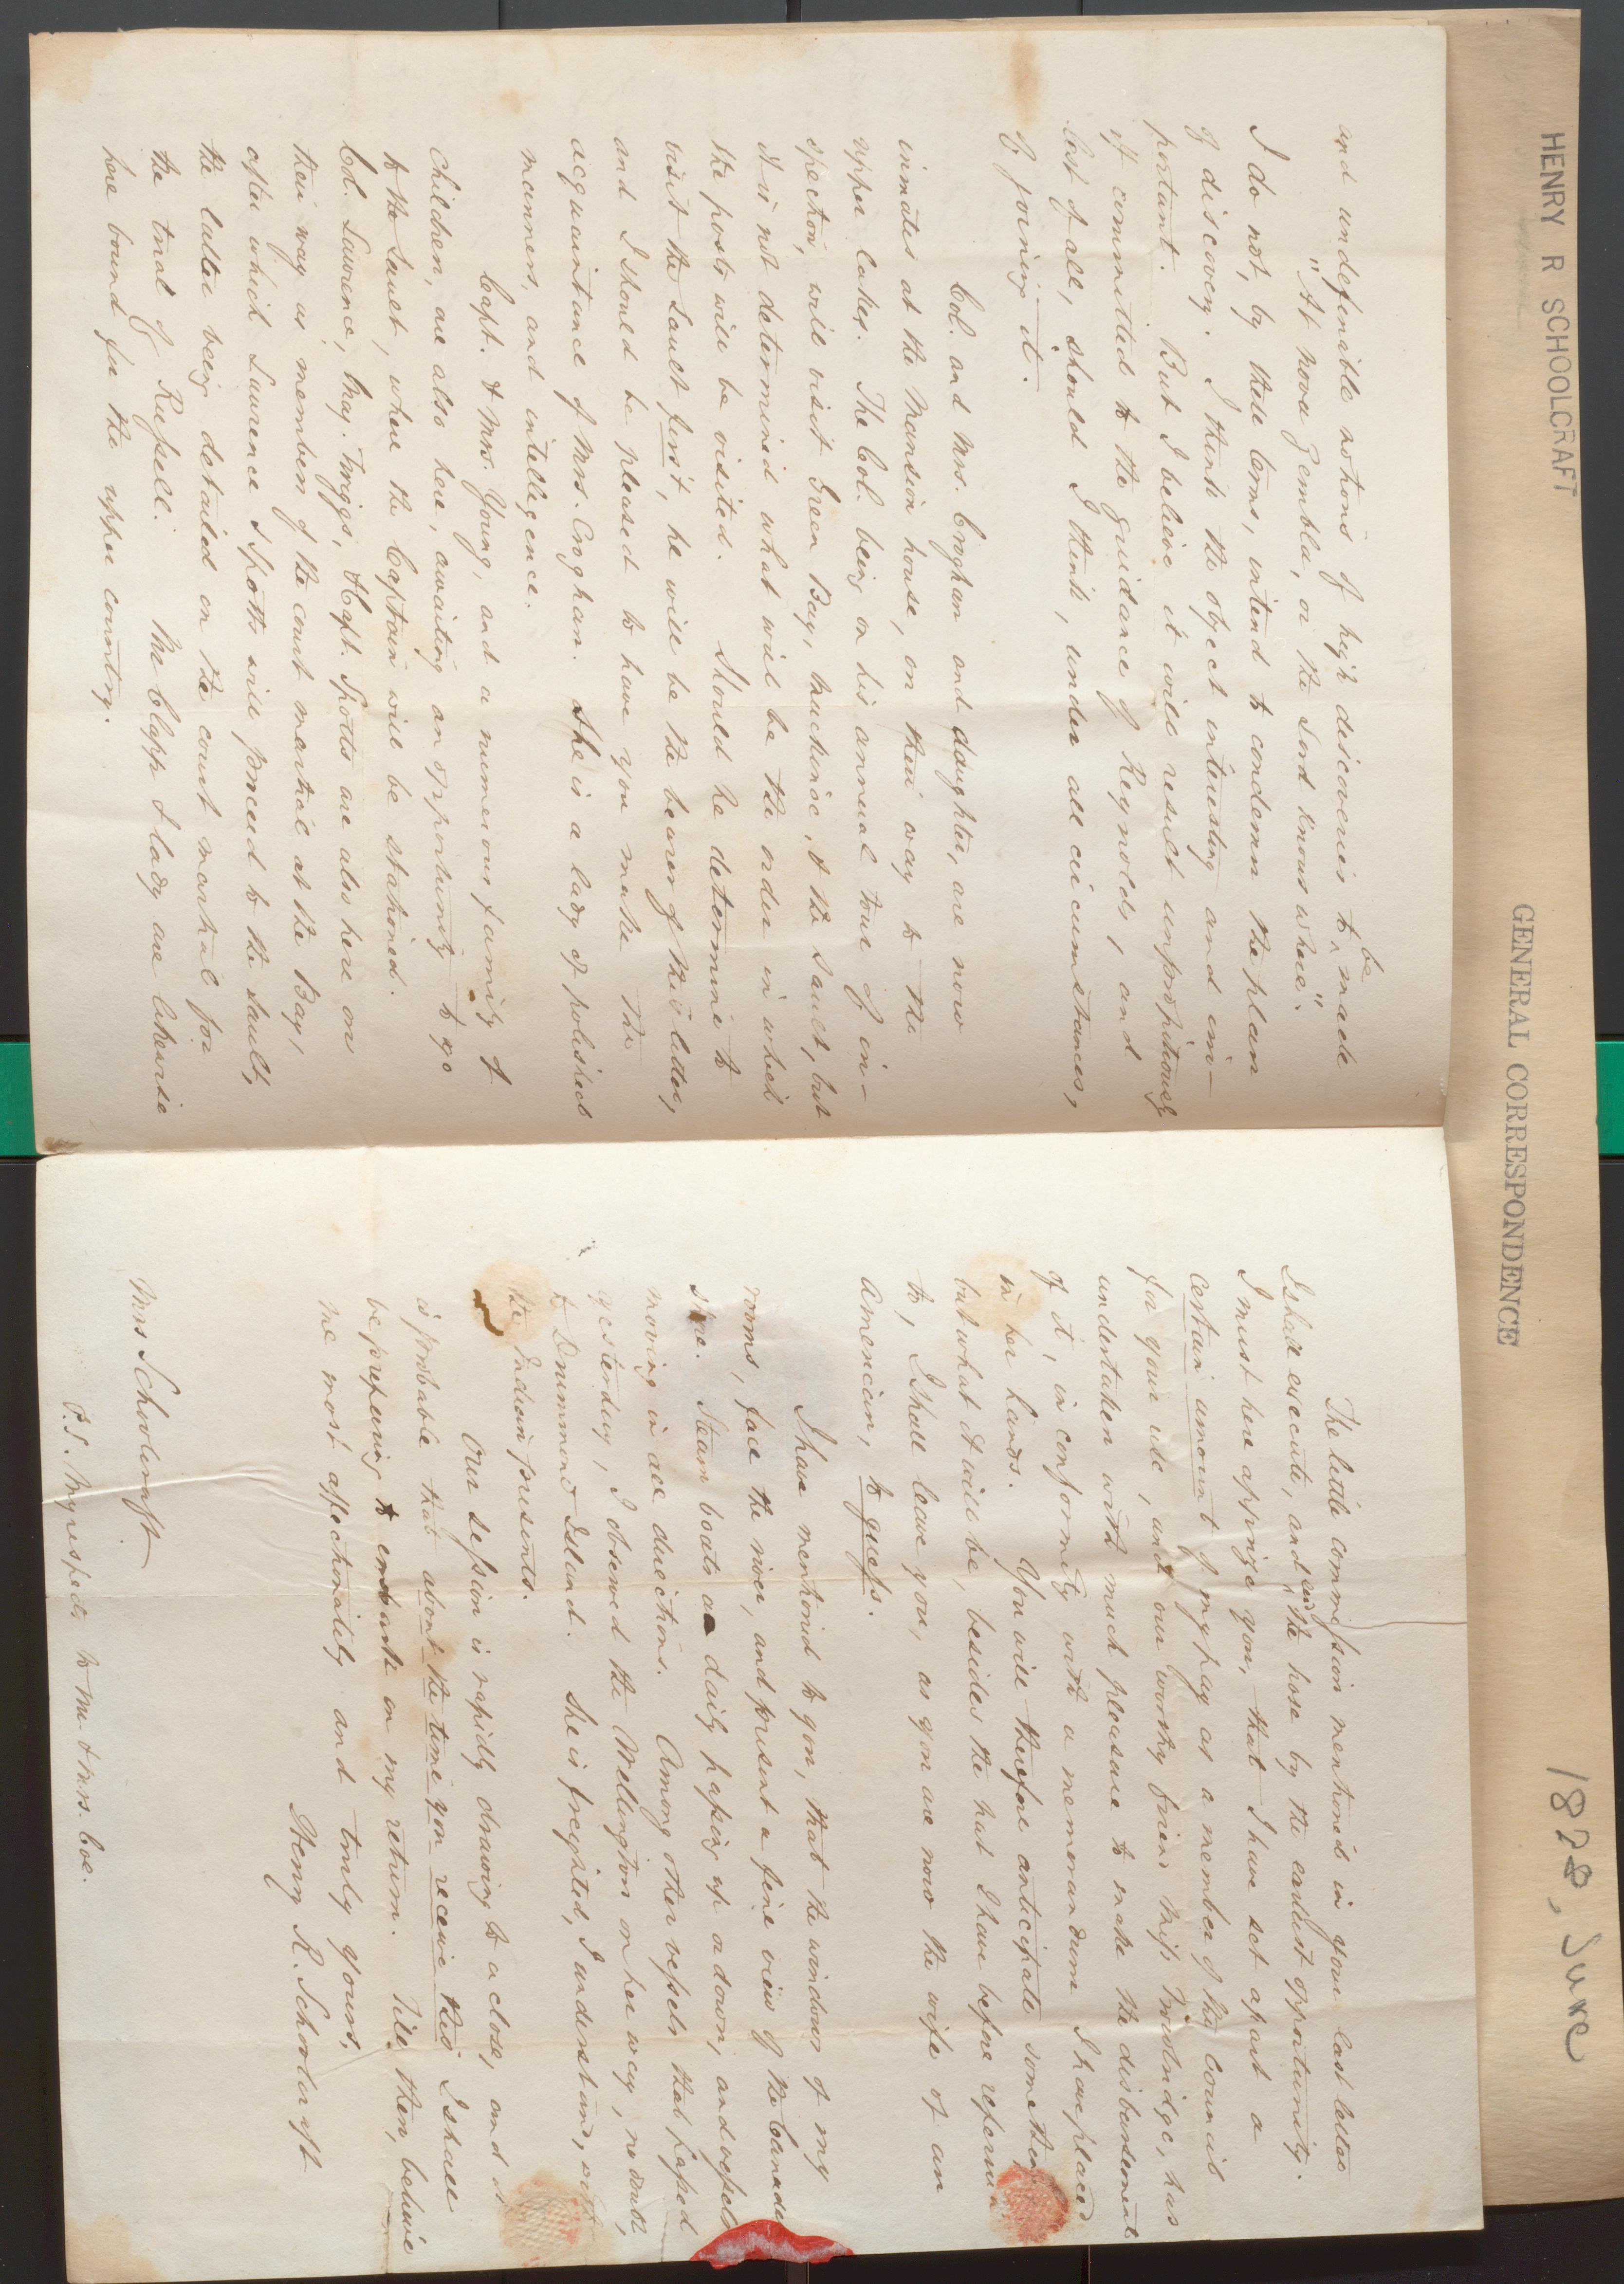 HENRY R SCHOOLCRAFT
GENERAL CORRESPONDENCE
1828, June
and undefinable notions of high discoveries to be made
"At Nova Zembla, or the Lord knows where".
I do not, by these terms, intend to condemn the plan
of discovery. I think the object interesting and im-
portant. But I believe it will result unpropitiously
if committed to the guidance of Reynolds, and
last of all, should I think, under all circumstances,
of joining it.
Col. and Mrs. Croghan and daughter, are now
inmates at the Mansion house, on their way to the
upper lakes. The Col. being on his annual tour of in-
spection, will visit Green Bay, Mackinac, & the Sault, but
it is not determined what will be the order in which
the posts will be visited. Should he determine to
visit the Sault first, he will be the bearer of this letter,
and I should be pleased to have you make the
acquaintance of Mrs. Croghan. She is a lady of polished
manners, and intelligence.
Capt. & Mrs. Young, and a numerous family of
children, are also here, awaiting an opportunity to go
to the Sault, where the Captain will be stationed.
Col. Lawrence, Maj. Twiggs, & Capt. Spotts are also here on
their way as members of the court martial at the Bay,
after which Lawrence & Spotts will proceed to the Sault,
the latter being detailed on the court martial for
the trial of Russell. Mr Clapp & lady are likewise
here bound for the upper country.
The little commission mentioned in your last letter
I shall execute, and send the hose by the earliest opportunity.
I must here apprize you, that I have set apart a
certain amount of my pay as a member of the Council
for your use, and our worthy friend Miss Trowbridge, has
undertaken with much pleasure to make the disbursements
of it, in conformity with a memorandum I have placed
in her hands. You will therefore anticipate something
but what it will be, besides the hat I have before referred
to, I shall leave you, as you are now the wife of an
American, to guess.
I have mentioned to you, that the windows of my
rooms, face the river, and present a fine view of the Canada
shore. Steam boats are daily passing up or down, and vessels
moving in all directions. Among other vessels that passed
yesterday, I observed the Wellington on her way, no doubt,
to Drummond Island. She is freighted, I understand, with
the Indian presents.
Our session is rapidly drawing to a close, and it
is probable that about the time you receive this I shall
be preparing to embark on my return. Till then, believe
me most affectionately and truly yours,
Henry R. Schoolcraft
Mrs Schoolcraft
P.S. My respects to Mr. & Mrs. Coe.